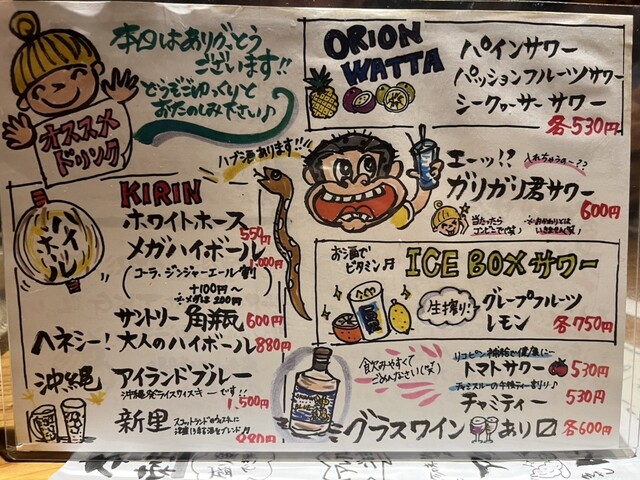 本日はありがとう
ございます!!
どうぞごゆっくりと
おたのしみ下さい♪
オススメ
ドリンク
ハブ酒あります!!
ハイボール
KIRIN
ホワイトホース 550円
メガハイボール 1,000円
(コーラ、ジンジャーエール割)
+100円～
※メガは200円
サントリー 角瓶 600円
ヘネシー! 大人のハイボール 880円
沖縄
アイランドブルー
沖縄発ライスウイスキーです!!
1,500円
新里
ORION
WATTA
パインサワー
パッションフルーツサワー
シークヮーサーサワー
各530円
エーッ!? 入れちゃうの～??
ガリガリ君サワー
600円
当たったら
コンビニで(笑)
※おかわりとは
いきません(笑)
お酒で
ビタミン♬
ICE BOXサワー
生搾り!
グレープフルーツ
レモン
各750円
飲みやすくて
ごめんなさい(笑)
リコピン補給で健康に
トマトサワー 530円
チャミティー 530円
グラスワイン あり〼 各600円